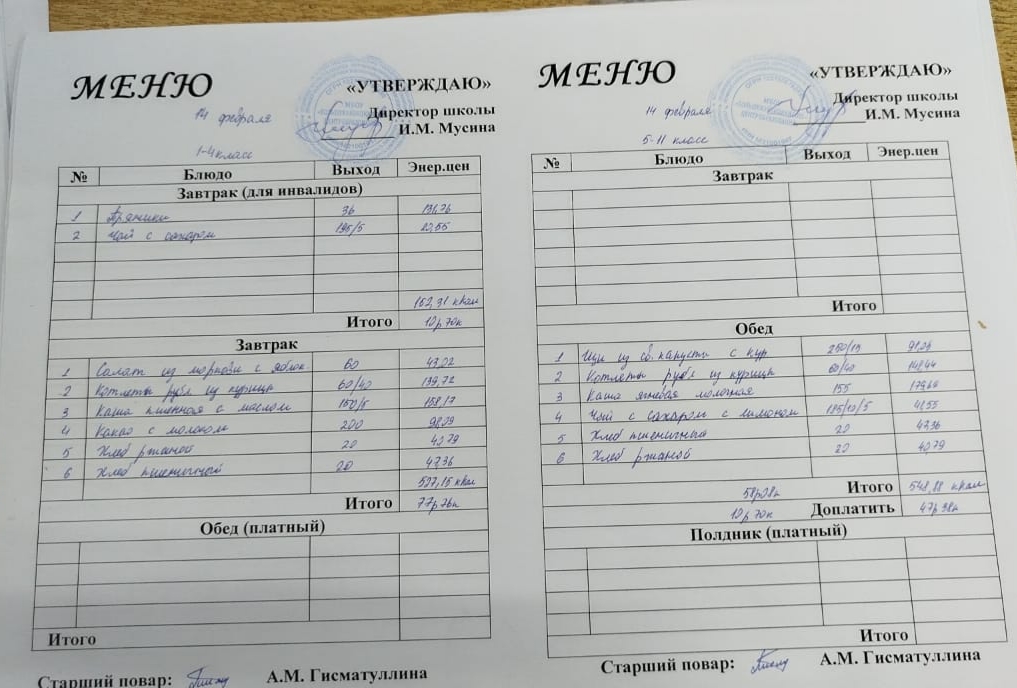 МЕНЮ
«УТВЕРЖДАЮ»
14 февраля
Директор школы
И.М. Мусина
1-4 класс
№ Блюдо Выход Энер.цен
Завтрак (для инвалидов)
1 Пряники 36 131,76
2 Чай с сахаром 195/5
162,31 ккал
Итого 10р 70к
Завтрак
1 Салат из моркови с яблок 60 43,02
2 Котлеты рубл из курицы 60/40 139,72
3 Каша пшенная с маслом 150/5 158,17
4 Какао с молоком 200 98,09
5 Хлеб ржаной 20 40,79
6 Хлеб пшеничный 20 47,36
527,15 ккал
Итого 77р 76к
Обед (платный)
Итого
Старший повар: А.М. Гисматуллина
МЕНЮ
«УТВЕРЖДАЮ»
14 февраля
Директор школы
И.М. Мусина
5-11 класс
№ Блюдо Выход Энер.цен
Завтрак
Итого
Обед
1 Щи из св. капусты с кур 250/15 91,06
2 Котлеты рубл из курицы 60/40
3 Каша ячневая молочная 155
4 Чай с сахаром с лимоном
5 Хлеб пшеничный 20 47,36
6 Хлеб ржаной 20 40,79
58р08к Итого 548,88 ккал
10р 70к Доплатить 47р 38к
Полдник (платный)
Итого
Старший повар: А.М. Гисматуллина